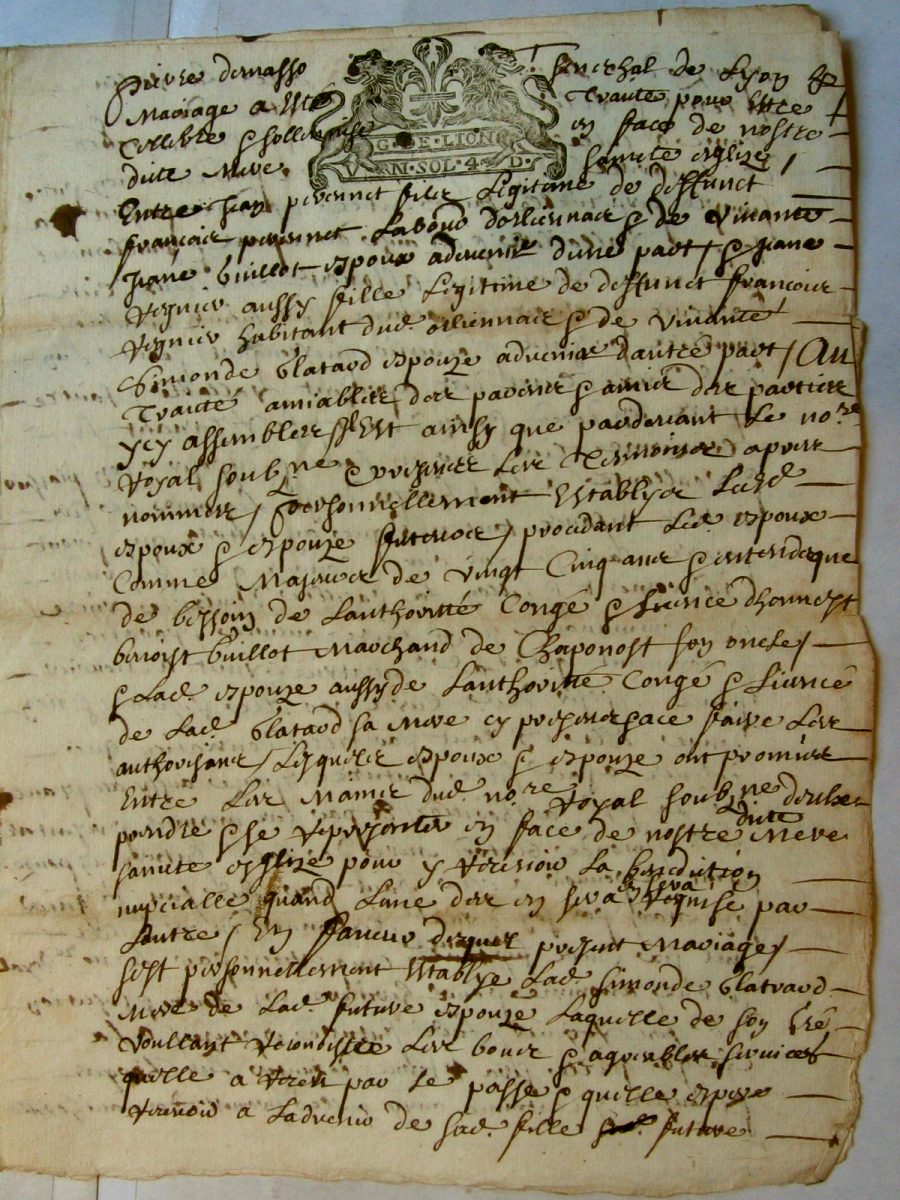 Pierre demasso senechal de Lyon &
Mariage a Esté Traité pour Estre
Cellebre & sollempnise en face de nostre
GNE·LION
VN·SOL·4·D
dicte Mere saincte esglize /
Entre Jean peronnet filz Legitime de deffunct
francois peronnet Labour dorliennas & de vivante
Jeane buillot espoux advenir dune part / & Jeane
Vognier aussy fille Legitime de deffunct francois
Vognier habitant dud. orliennas & de vivante
Simonde blatard espouze advenir dautre part / Au
Traicté amiablle des parens & amis des parties
ycy assembles / Est ainsy que pardevant le no.re
Royal soubz.ne & presens les Tesmoins apres
nommes / personnellement Establys Lesd.
espoux & espouze futeurs / procedant Led. espoux
Comme Majeur de vingt Cinq ans & entend que
de bessoin de Lauthoritté Congé & Licence dhonnest
benoist buillot Marchand de Chaponost son oncle /
& Lad. espouze aussy de Lauthoritté Congé & Licence
de Lad. blatard sa Mere cy presens & ace faire Les
authorisans / Lesquels espoux & espouze ont promis
Entre Les Mains dud. no.re Royal soubz.ne
prendre & se representer en face de nostre dicte Mere
saincte esglize pour y recevoir La benediction
nupcialle quand Lune des en sera requise par
Lautre / En faveur duquel present Mariage /
sest personnellement Establye Lad. Simonde blatard
Mere de Lad. future espouze Laquelle de son gré
voullant recondistre Les bons & agreables services
quelle a receu par le passé & quelle espere
recevoir a Ladvenir de sad. fille future